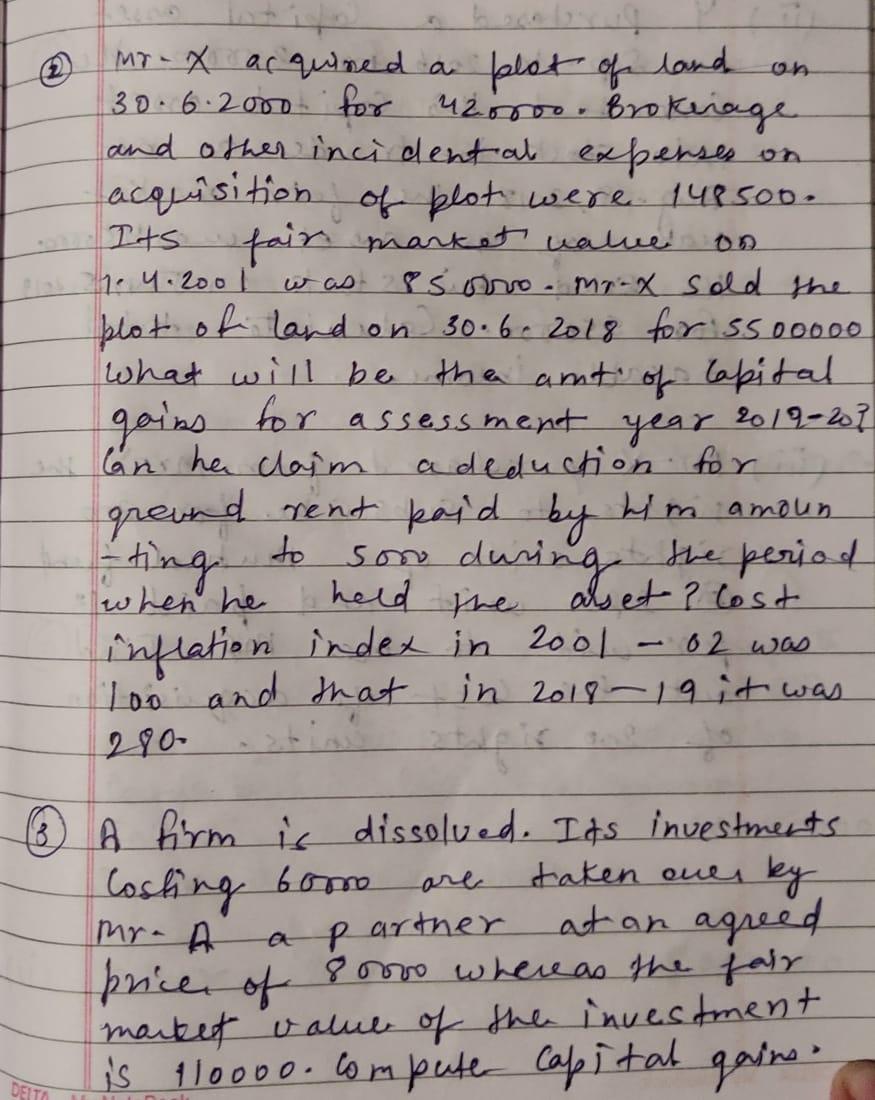 ② Mr-X acquired a plot of land on
30.6.2000 for 420000. Brokerage
and other incidental expenses on
acquisition of plot were 148500.
Its fair market value on
1.4.2001 was 850000. Mr-X sold the
plot of land on 30.6.2018 for 5500000
What will be the amt. of Capital
gains for assessment year 2019-20?
Can he claim a deduction for
ground rent paid by him amoun
-ting to 5000 during the period
when he held the asset? Cost
inflation index in 2001-02 was
100 and that in 2018-19 it was
280.
③ A firm is dissolved. Its investments
Costing 60000 are taken over by
Mr. A a partner at an agreed
price of 80000 whereas the fair
market value of the investment
is 110000. Compute Capital gains.
DELTA